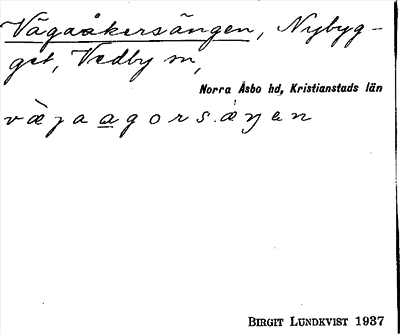 Vägaåkersängen, Nybyg-
get, Vedby sn,
Norra Åsbo hd, Kristianstads län
vægaagorsæŋen
BIRGIT LUNDKVIST 1937